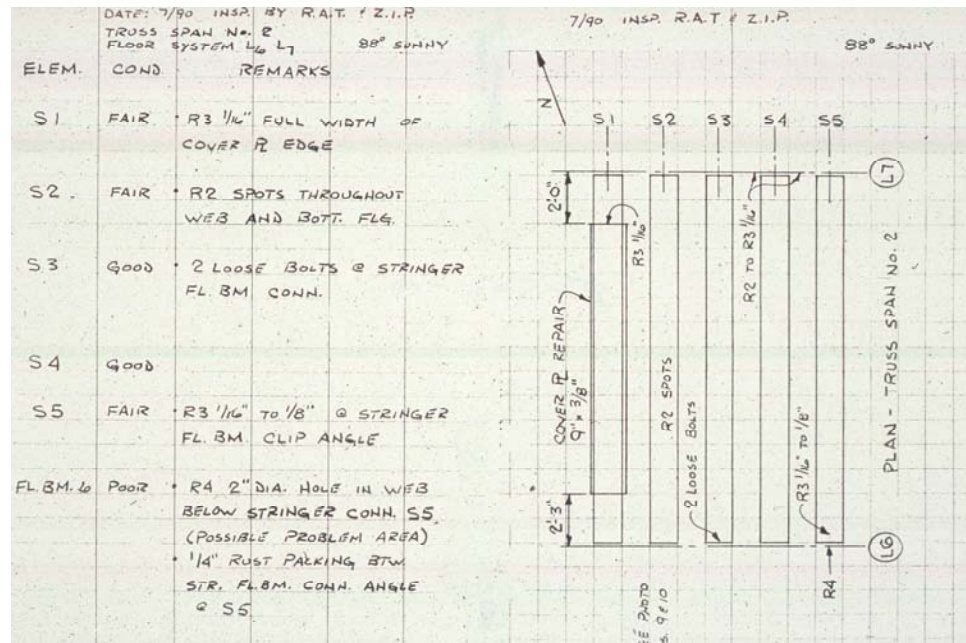 DATE: 7/90 INSP. BY R.A.T. & Z.I.P.
TRUSS SPAN No. 2
FLOOR SYSTEM L6 L7 88° SUNNY
ELEM. COND. REMARKS
S1 FAIR • R3 1/16" FULL WIDTH OF
COVER PL EDGE
S2. FAIR • R2 SPOTS THROUGHOUT
WEB AND BOTT. FLG.
S3 GOOD • 2 LOOSE BOLTS @ STRINGER
FL. BM. CONN.
S4 GOOD
S5 FAIR • R3 1/16" TO 1/8" @ STRINGER
FL. BM. CLIP ANGLE
FL. BM. 6 POOR • R4 2" DIA. HOLE IN WEB
BELOW STRINGER CONN. S5
(POSSIBLE PROBLEM AREA)
• 1/4" RUST PACKING BTW.
STR. FL. BM. CONN. ANGLE
@ S5
7/90 INSP. R.A.T & Z.I.P.
88° SUNNY
N
S1 S2 S3 S4 S5
L7
2'-0"
R3 1/16"
R2 TO R3 1/16"
COVER PL REPAIR
9" x 3/8"
R2 SPOTS
2 LOOSE BOLTS
R3 1/16" TO 1/8"
2'-3"
L6
R4
PLAN - TRUSS SPAN No. 2
PHOTO
9 & 10